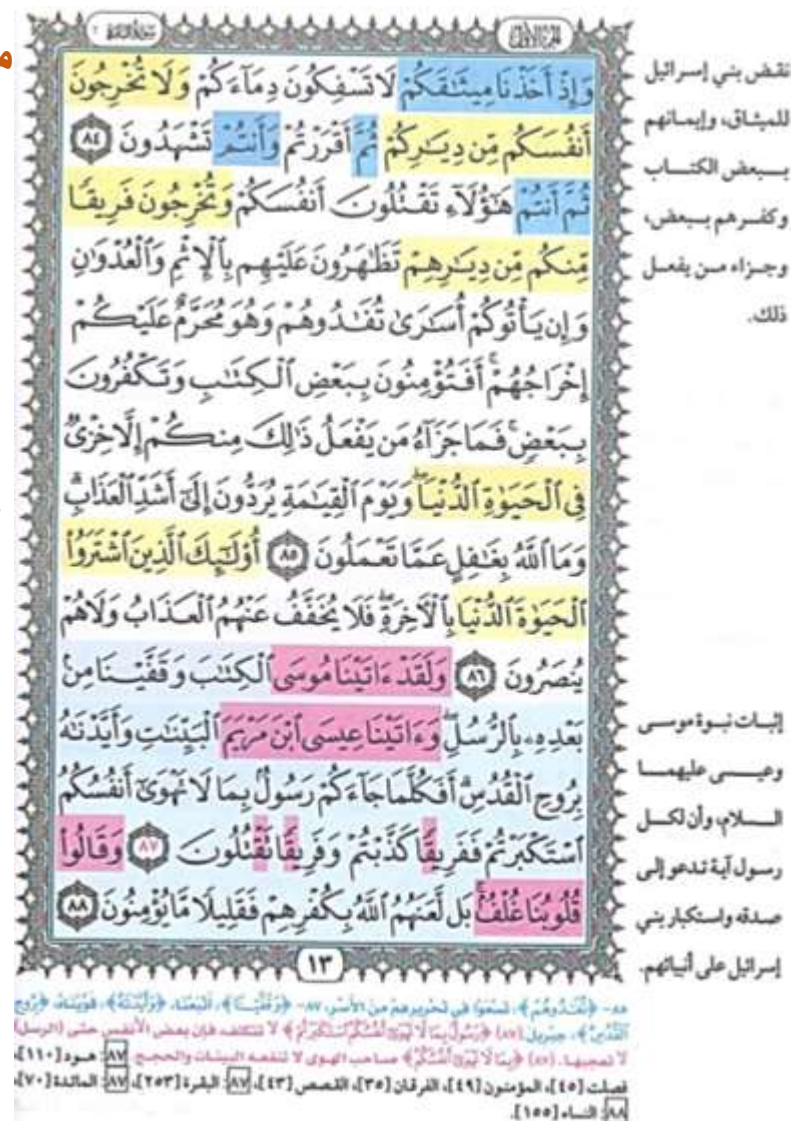 الجزء الأول
سورة البقرة ٢
وَإِذْ أَخَذْنَا مِيثَٰقَكُمْ لَا تَسْفِكُونَ دِمَآءَكُمْ وَلَا تُخْرِجُونَ
أَنفُسَكُم مِّن دِيَٰرِكُمْ ثُمَّ أَقْرَرْتُمْ وَأَنتُمْ تَشْهَدُونَ ٨٤
ثُمَّ أَنتُمْ هَٰٓؤُلَآءِ تَقْتُلُونَ أَنفُسَكُمْ وَتُخْرِجُونَ فَرِيقًا
مِّنكُم مِّن دِيَٰرِهِمْ تَظَٰهَرُونَ عَلَيْهِم بِٱلْإِثْمِ وَٱلْعُدْوَٰنِ
وَإِن يَأْتُوكُمْ أُسَٰرَىٰ تُفَٰدُوهُمْ وَهُوَ مُحَرَّمٌ عَلَيْكُمْ
إِخْرَاجُهُمْ ۚ أَفَتُؤْمِنُونَ بِبَعْضِ ٱلْكِتَٰبِ وَتَكْفُرُونَ
بِبَعْضٍ ۚ فَمَا جَزَآءُ مَن يَفْعَلُ ذَٰلِكَ مِنكُمْ إِلَّا خِزْىٌ
فِى ٱلْحَيَوٰةِ ٱلدُّنْيَا ۖ وَيَوْمَ ٱلْقِيَٰمَةِ يُرَدُّونَ إِلَىٰٓ أَشَدِّ ٱلْعَذَابِ ۗ
وَمَا ٱللَّهُ بِغَٰفِلٍ عَمَّا تَعْمَلُونَ ٨٥ أُو۟لَٰٓئِكَ ٱلَّذِينَ ٱشْتَرَوُا۟
ٱلْحَيَوٰةَ ٱلدُّنْيَا بِٱلْءَاخِرَةِ ۖ فَلَا يُخَفَّفُ عَنْهُمُ ٱلْعَذَابُ وَلَا هُمْ
يُنصَرُونَ ٨٦ وَلَقَدْ ءَاتَيْنَا مُوسَى ٱلْكِتَٰبَ وَقَفَّيْنَا مِنۢ
بَعْدِهِۦ بِٱلرُّسُلِ ۖ وَءَاتَيْنَا عِيسَى ٱبْنَ مَرْيَمَ ٱلْبَيِّنَٰتِ وَأَيَّدْنَٰهُ
بِرُوحِ ٱلْقُدُسِ ۗ أَفَكُلَّمَا جَآءَكُمْ رَسُولٌۢ بِمَا لَا تَهْوَىٰٓ أَنفُسُكُمُ
ٱسْتَكْبَرْتُمْ فَفَرِيقًا كَذَّبْتُمْ وَفَرِيقًا تَقْتُلُونَ ٨٧ وَقَالُوا۟
قُلُوبُنَا غُلْفٌۢ ۚ بَل لَّعَنَهُمُ ٱللَّهُ بِكُفْرِهِمْ فَقَلِيلًا مَّا يُؤْمِنُونَ ٨٨
١٣
نقض بني إسرائيل
للميثاق، وإيمانهم
ببعض الكتاب
وكفرهم ببعض،
وجزاء من يفعل
ذلك.
إثبات نبوة موسى
وعيسى عليهما
السلام، وأن لكل
رسول آية تدعو إلى
صدقه واستكبار بني
إسرائيل على أنبيائهم.
٨٥- ﴿تُفَٰدُوهُمْ﴾: تسعوا في تحريرهم من الأسر، ٨٧- ﴿وَقَفَّيْنَا﴾: أتبعنا، ﴿وَأَيَّدْنَٰهُ﴾: قويناه، ﴿بِرُوحِ
ٱلْقُدُسِ﴾: جبريل. (٨٧) ﴿رَسُولٌۢ بِمَا لَا تَهْوَىٰٓ أَنفُسُكُمُ ٱسْتَكْبَرْتُمْ﴾ لا تتكلف فإن بعض الأنفس حتى (الرسل)
لا تعجبها. (٨٧) ﴿بِمَا لَا تَهْوَىٰٓ أَنفُسُكُمُ﴾ صاحب الهوى لا تنفعه البينات والحجج. ٨٧: هود [١١٠]،
فصلت [٤٥]، المؤمنون [٤٩]، الفرقان [٣٥]، القصص [٤٣]، ٨٧: البقرة [٢٥٣]، ٨٧: المائدة [٧٠]،
٨٨: النساء [١٥٥].